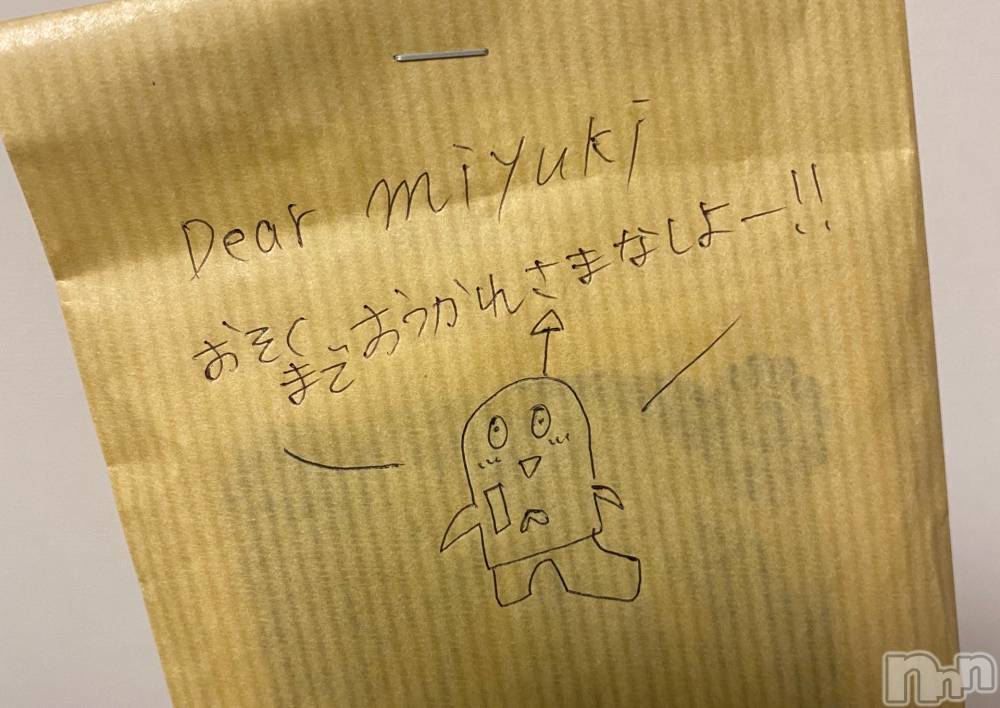 Dear miyuki
おそく
まで
おつかれさまなしよー!!
nnn